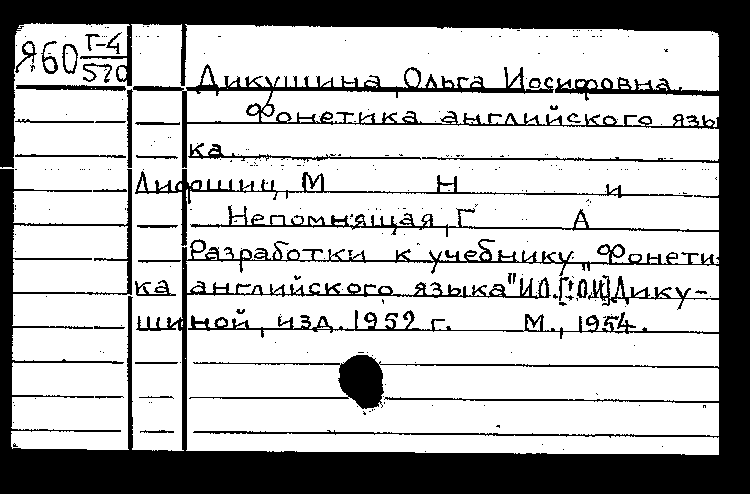 Я60 Г-4
570
Дикушина, Ольга Иосифовна.
Фонетика английского язы
ка.
Лифшиц, М Н и
Непомнящая, Г А
Разработки к учебнику „Фонети
ка английского языка" И.О.[!О.И] Дику-
шиной, изд. 1952 г. М., 1954.